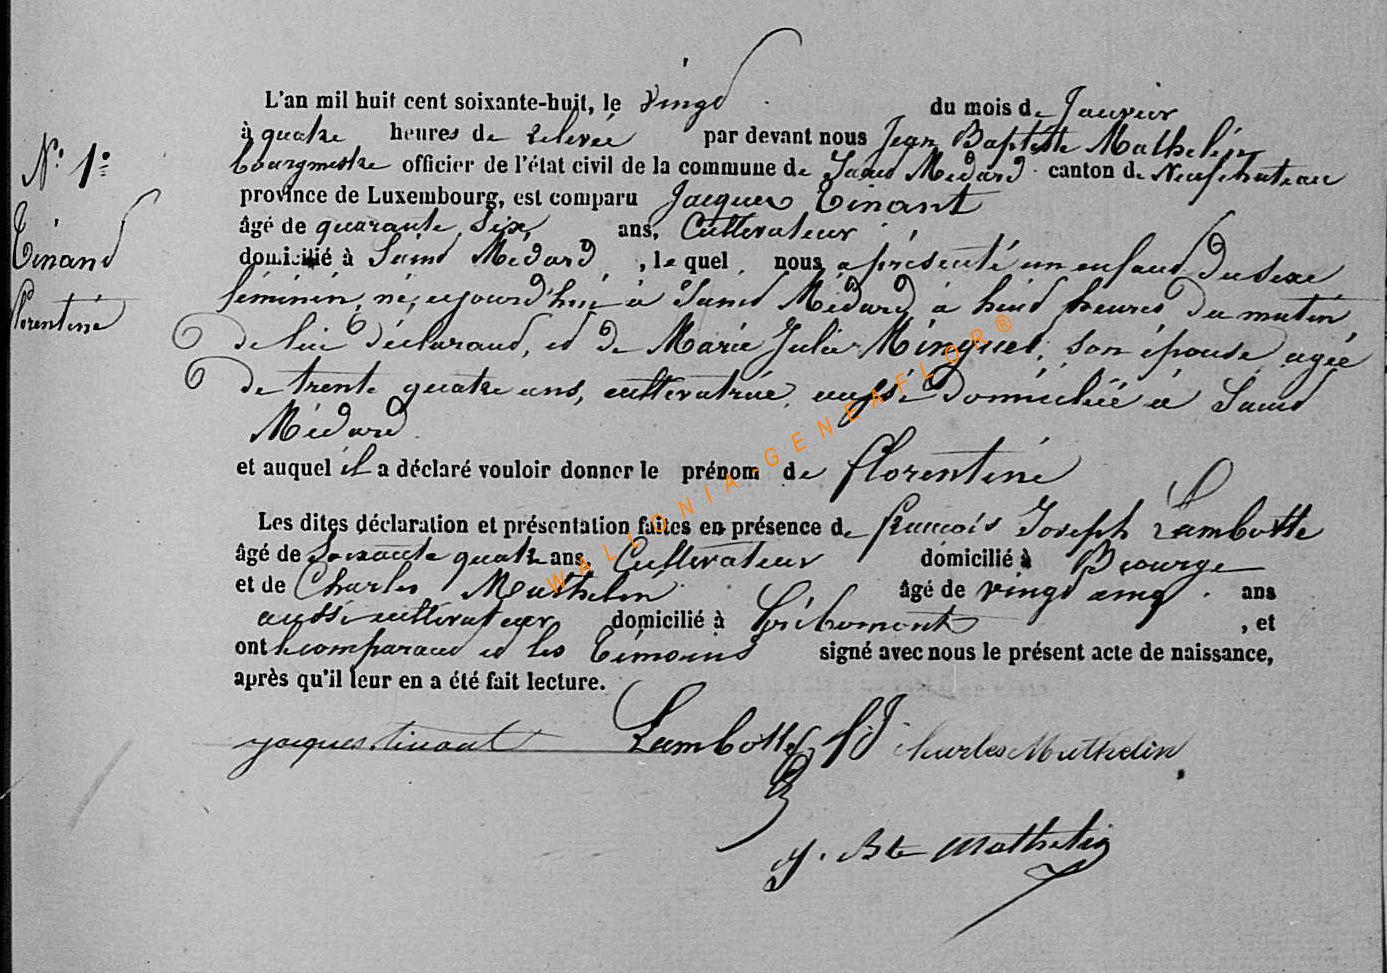 N° 1er
Tinand
florentine
L'an mil huit cent soixante-huit, le vingd du mois de Janvier
à quatre heures de relevée par devant nous Jean Baptiste Mathelin
bourgmestre officier de l'état civil de la commune de Saind Médard canton de Neufchateau
province de Luxembourg, est comparu Jacques Tinant
âgé de quarante six ans, Cultivateur
domicilié à Saind Médard, lequel nous a présenté un enfand du sexe
féminin, né, aujourd'hui à Saind Médard, à huid heures du matin,
de lui déclarand, ed de Marie Julie Minguet, son épouse agée
de trente quatre ans, cultivatrice, aussi domiciliée à Saind
Médard
et auquel il a déclaré vouloir donner le prénom de florentine
Les dites déclaration et présentation faites en présence de françois Joseph Lambotte
âgé de Soixante quatre ans, Cultivateur domicilié à Biourge
et de Charles Mathelin âgé de vingd cinq ans
aussi cultivateur domicilié à Gribomont, et
ont le comparand ed les témoins signé avec nous le présent acte de naissance,
après qu'il leur en a été fait lecture.
jacques tinant Lambotte fJ charles Mathelin
J. Bte Mathelin
WALLONIA-GENEAFLOR®